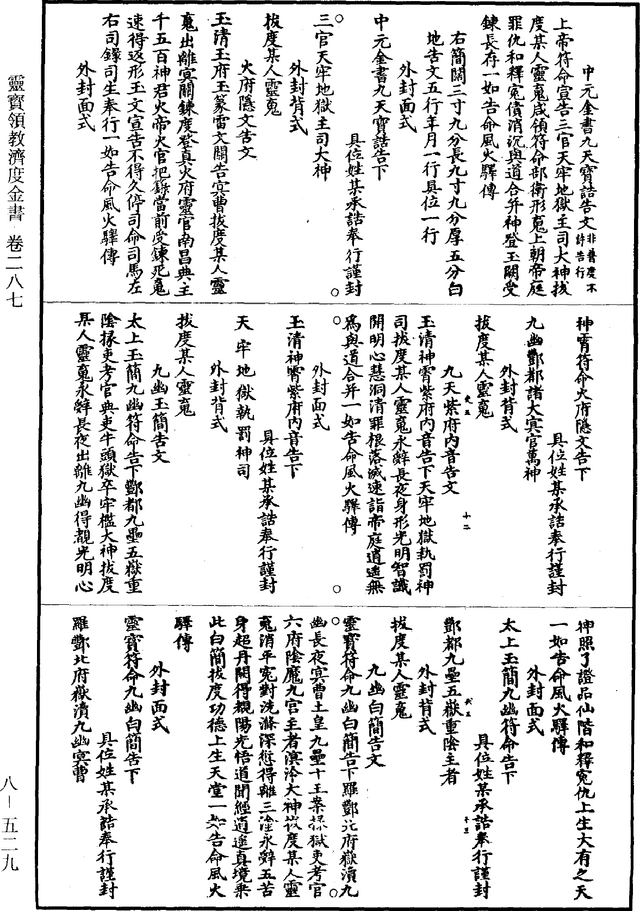 中元金書九天寶誥告文非普度不許告行
上帝符命宣告三官天牢地獄主司大神拔
度某人靈魂咸領符命部衛形魂上朝帝庭
罪仇和釋冤債消沉與道合并神登玉闕受
鍊長存一如告命風火驛傳
右簡闊三寸九分長九寸九分厚五分白
地告文五行年月一行具位一行
外封面式
中元金書九天寶誥告下
具位姓某承誥奉行謹封
三官天牢地獄主司大神
外封背式
拔度某人靈魂
火府隱文告文
玉清玉府玉篆雷文關告冥曹拔度某人靈
魂出離冥關鍊度登真火府靈官南昌典主
千五百神君火帝火官把籙當前受鍊死魂
速得返形玉文宣告不得久停司命司馬左
右司錄司生奉行一如告命風火驛傳
外封面式
神霄符命火府隱文告下
具位姓某承誥奉行謹封
九幽酆都諸大冥官萬神
外封背式
拔度某人靈魂
九天紫府內音告文
玉清神霄紫府內音告下天牢地獄執罰神
司拔度某人靈魂永辭長夜身形光明智識
開明心慧洞清罪根落滅速詣帝庭逍遙無
為與道合并一如告命風火驛傳
外封面式
玉清神霄紫府內音告下
具位姓某承誥奉行謹封
天牢地獄執罰神司
外封背式
拔度某人靈魂
九幽玉簡告文
太上玉簡九幽符命告下酆都九壘五嶽重
陰掾吏考官典吏牛頭獄卒牢檻大神拔度
某人靈魂永辭長夜出離九幽得覩光明心
神照了證品仙階和釋冤仇上生大有之天
一如告命風火驛傳
外封面式
太上玉簡九幽符命告下
具位姓某承誥奉行謹封
酆都九壘五嶽重陰主者
外封背式
拔度某人靈魂
九幽白簡告文
靈寶符命九幽白簡告下羅酆北府嶽瀆九
幽長夜冥曹土皇九壘十王案掾獄吏考官
六府陰魔九官主者溟泠大神拔度某人靈
魂消平冤對洗滌深愆得離三塗永辭五苦
身超丹闕得覩陽光悟道聞經逍遙真境乘
此白簡拔度功德上生天堂一如告命風火
驛傳
外封面式
靈寶符命九幽白簡告下
具位姓某承誥奉行謹封
羅酆北府嶽瀆九幽冥曹
靈寶領教濟度金書 卷二八七
八－五二九